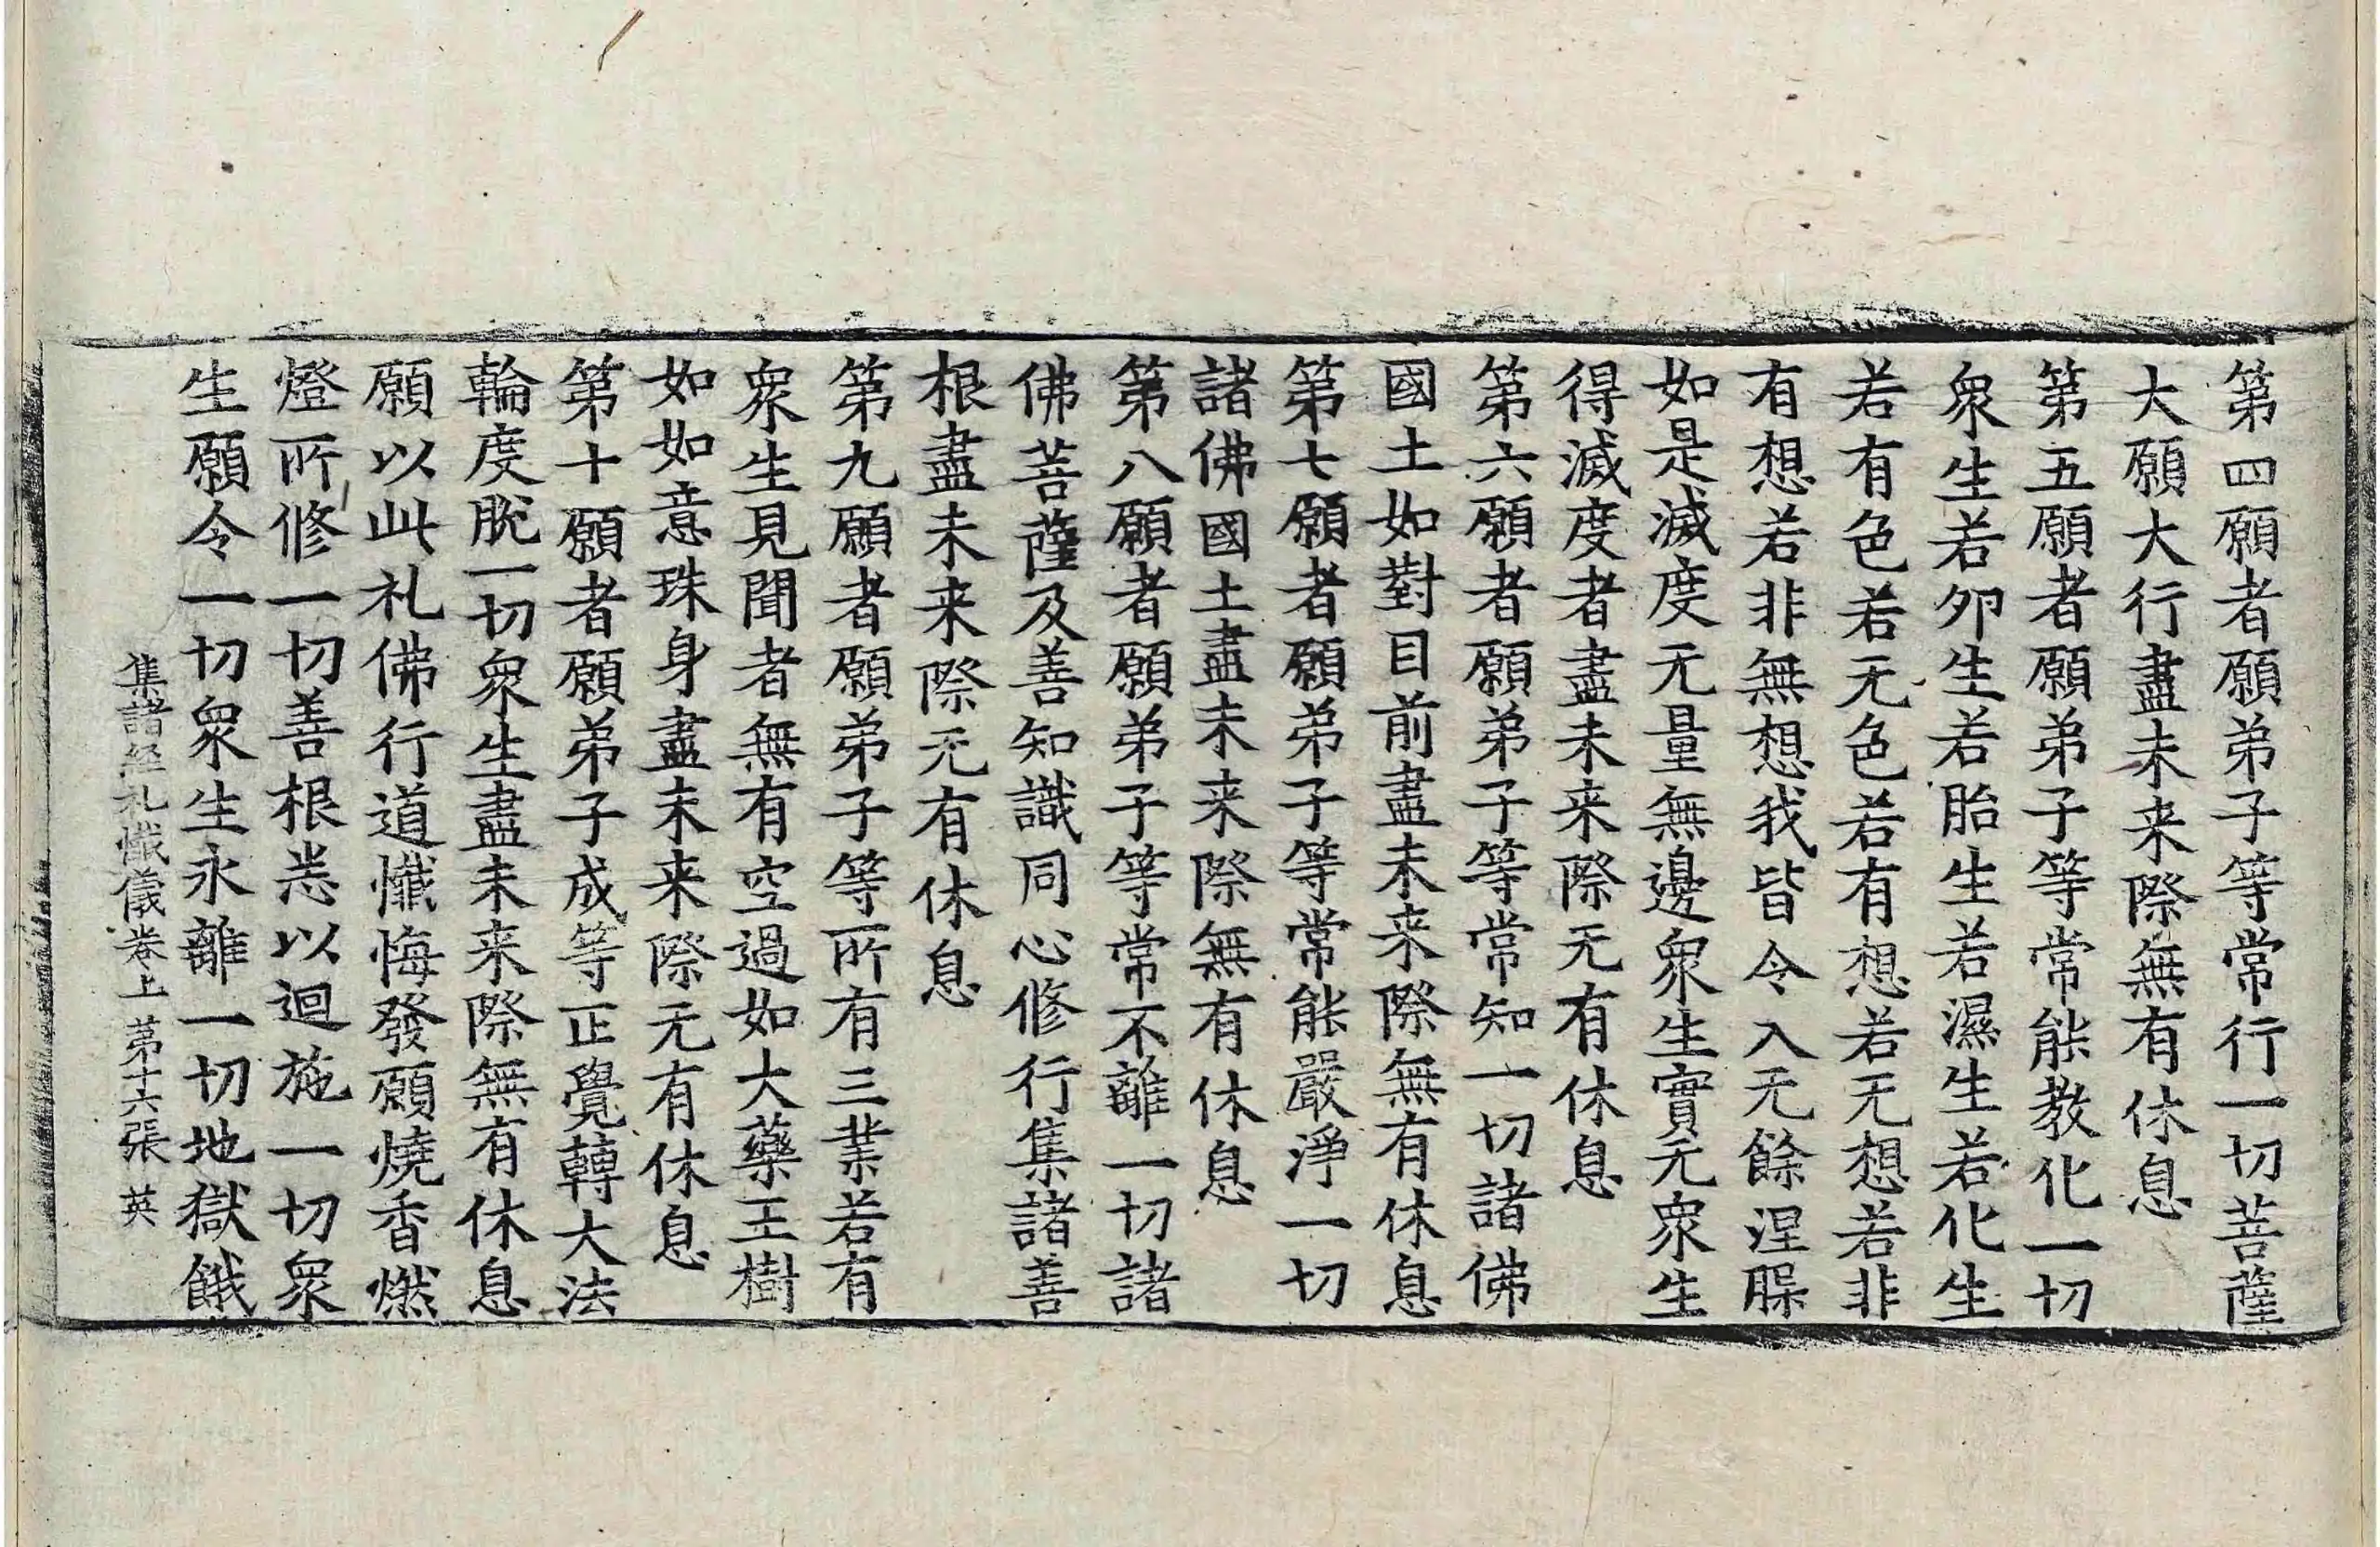 第四願者願弟子等常行一切菩薩
大願大行盡未来際無有休息
第五願者願弟子等常能教化一切
衆生若卵生若胎生若濕生若化生
若有色若无色若有想若无想若非
有想若非無想我皆令入无餘涅槃
如是滅度无量無邊衆生實无衆生
得滅度者盡未来際无有休息
第六願者願弟子等常知一切諸佛
國土如對目前盡未来際無有休息
第七願者願弟子等常能嚴淨一切
諸佛國土盡未来際無有休息
第八願者願弟子等常不離一切諸
佛菩薩及善知識同心修行集諸善
根盡未来際无有休息
第九願者願弟子等所有三業若有
衆生見聞者無有空過如大藥王樹
如如意珠身盡未来際无有休息
第十願者願弟子成等正覺轉大法
輪度脫一切衆生盡未来際無有休息
願以此礼佛行道懺悔發願燒香燃
燈所修一切善根悉以迴施一切衆
生願令一切衆生永離一切地獄餓
集諸経礼懺儀卷上 第十六張 英